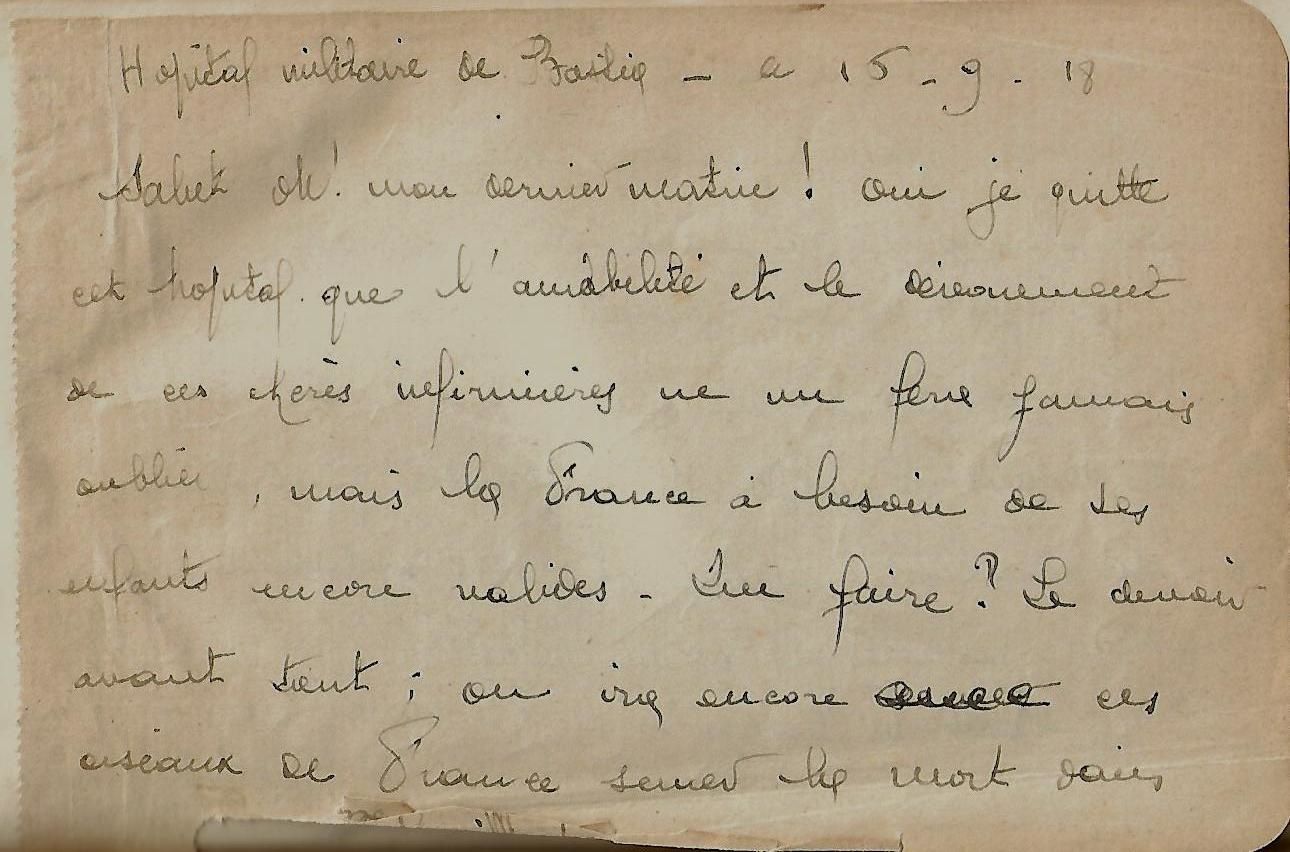 Hopital militaire de Bastia - a 15 - 9 . 18
Salut oh! mon dernier matin ! oui je quitte
cet hopital que l'amabilité et le dévouement
de ces chères infirmières ne me fera jamais
oublier , mais la France à besoin de ses
enfants encore valides - Que faire ? Le devoir
avant tout ; on ira encore ces
oiseaux de France semer la mort dans